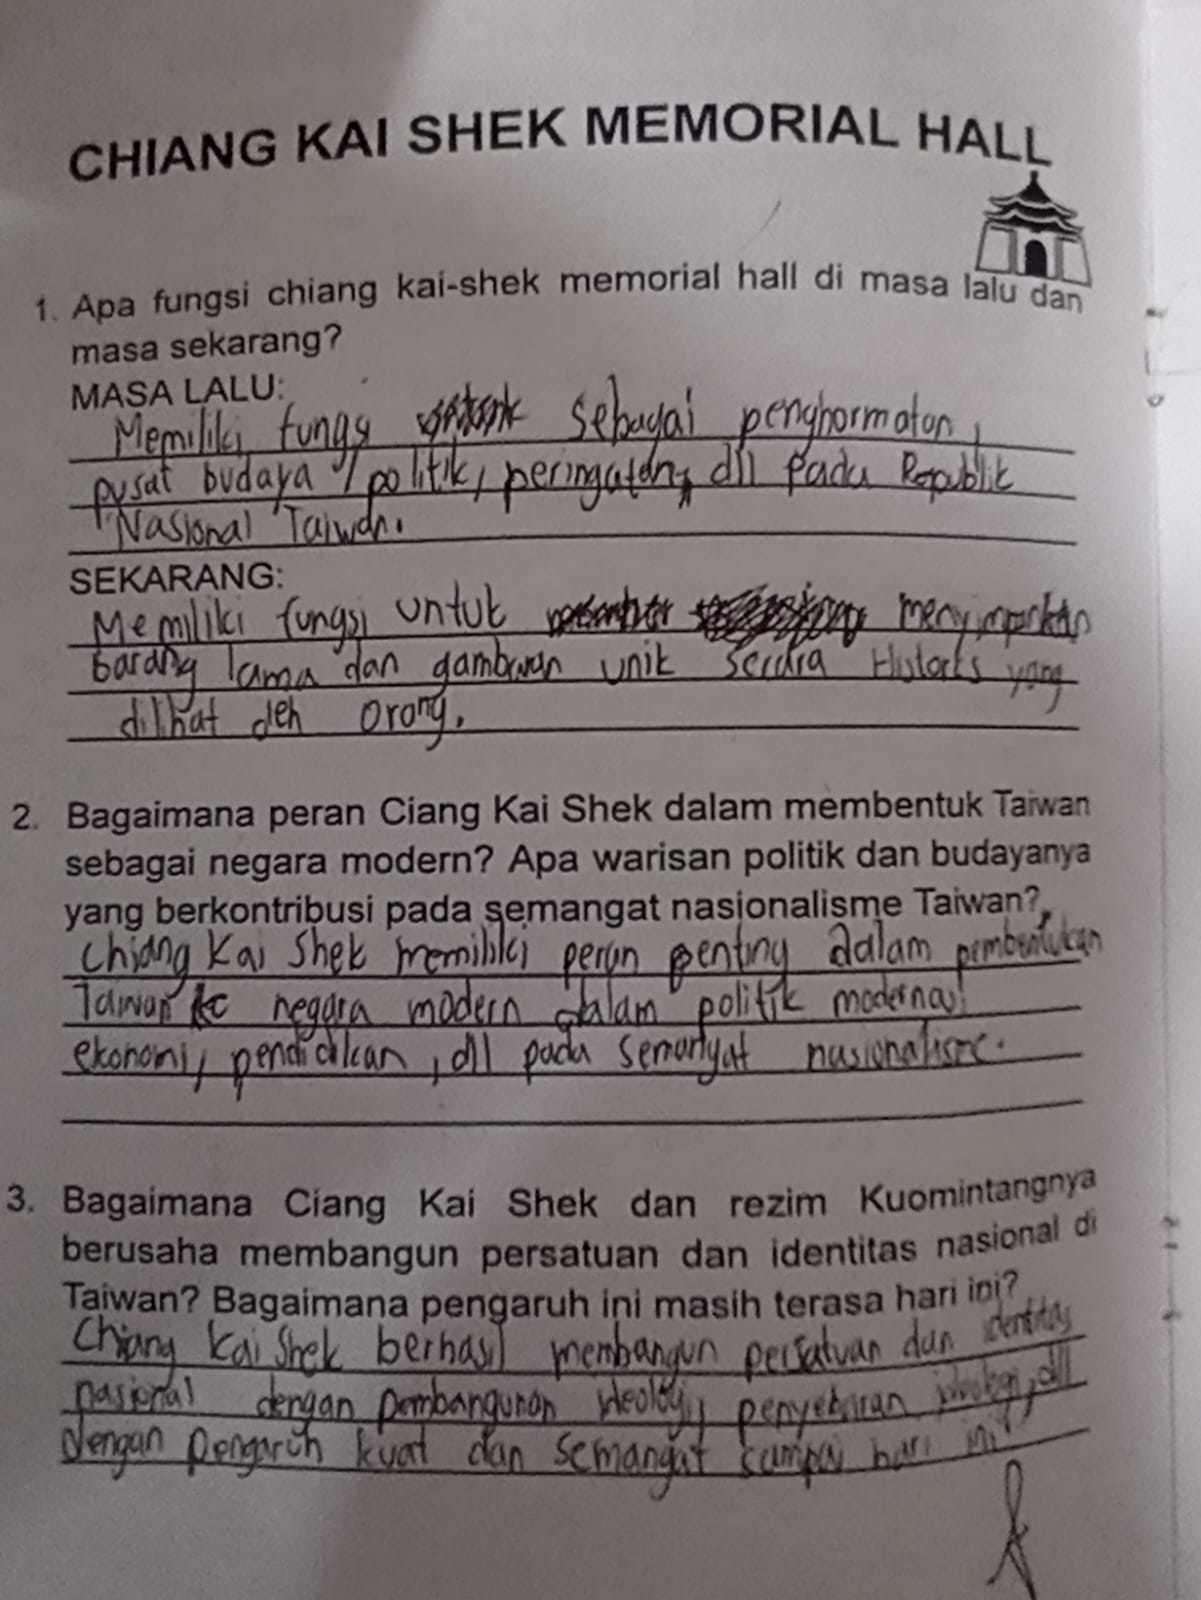 CHIANG KAI SHEK MEMORIAL HALL
1. Apa fungsi chiang kai-shek memorial hall di masa lalu dan
masa sekarang?
MASA LALU:
Memiliki fungsi sebagai penghormatan,
pusat budaya / politik, peringatan, dll pada Republik
Nasional Taiwan.
SEKARANG:
Memiliki fungsi untuk menyimpankan
barang lama dan gambaran unik secara Historis yang
dilihat oleh orang.
2. Bagaimana peran Ciang Kai Shek dalam membentuk Taiwan
sebagai negara modern? Apa warisan politik dan budayanya
yang berkontribusi pada semangat nasionalisme Taiwan?
Chiang Kai Shek memiliki peran penting dalam pembentukan
Taiwan ke negara modern dalam politik
ekonomi, pendidikan, dll pada semangat nasionalisme.
3. Bagaimana Ciang Kai Shek dan rezim Kuomintangnya
berusaha membangun persatuan dan identitas nasional di
Taiwan? Bagaimana pengaruh ini masih terasa hari ini?
Chiang Kai Shek berhasil membangun persatuan dan identitas
nasional dengan pembangunan ideologi, penyebaran ideologi, dll
dengan pengaruh kuat dan semangat sampai hari ini